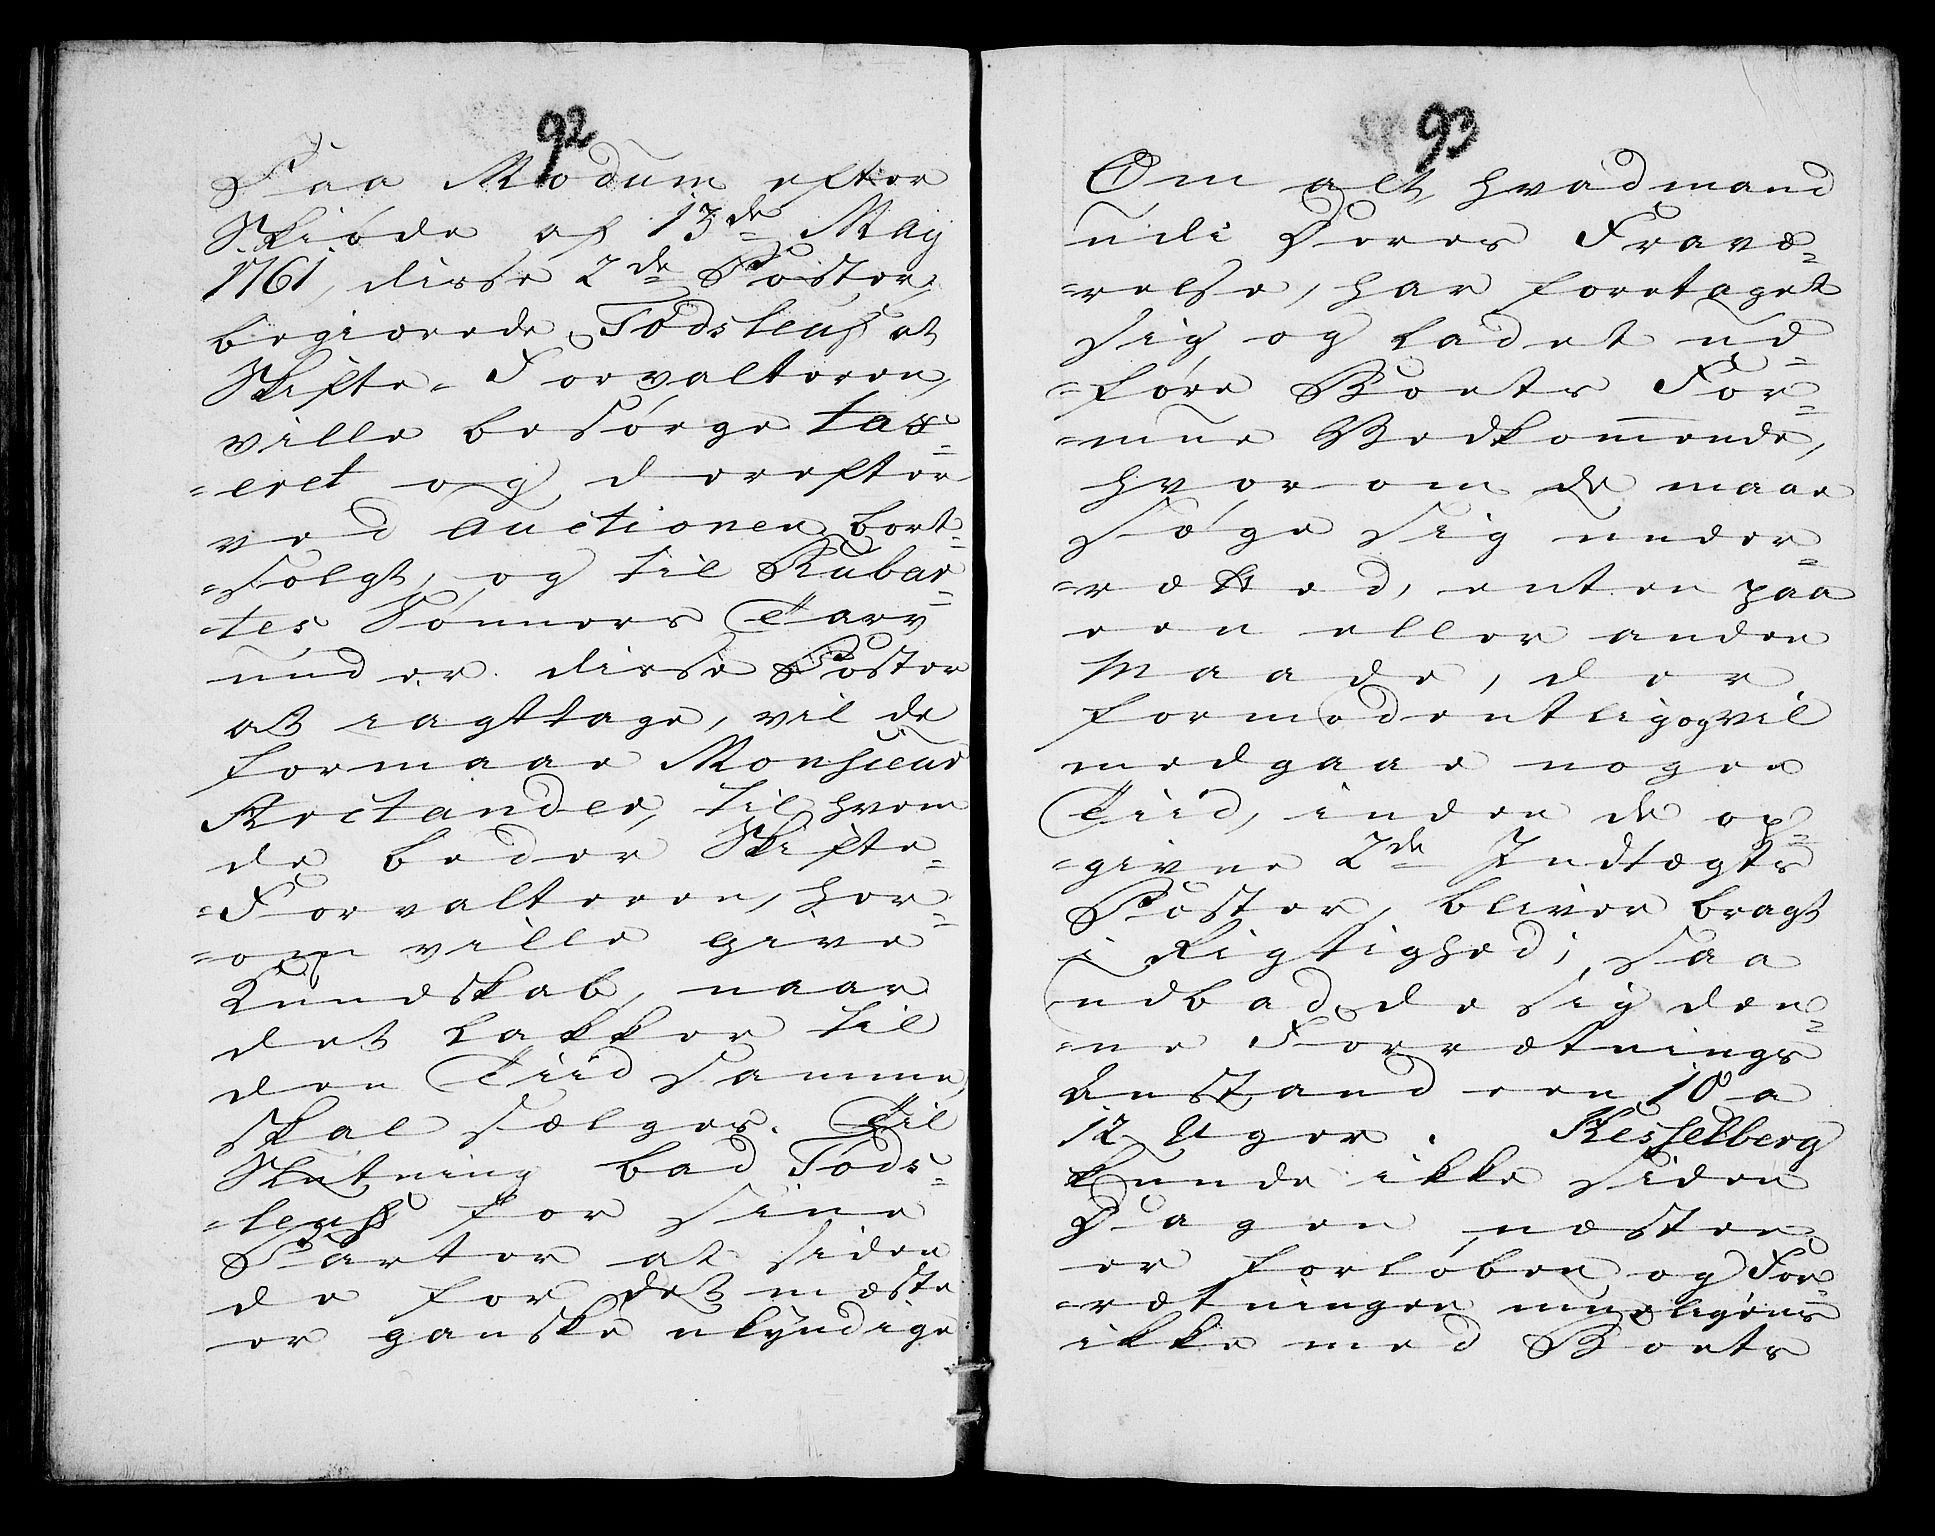 92
Paa Modum efter
Skiøde af 13de May
1761, disse 2de Poster,
begiærede Fødsleuf at
Skifte-Forvalteren,
ville besørge tax-
-eret og derefter
ved Auctionen bort-
-solgt, og til Rubar-
-tes Sønners Tarv
under disse Poster
at iagttage, vil de
formaae Monsieur
Arctander, til hvem
de beder, Skifte-
-Forvalteren, her-
-om ville give
Kundskab, naar
det lakker til
den Tiid samme,
skal sælges. Til
Slutning bad Føds-
-leuf for sine
Parter at siden
de for det meste
er ganske ukyndige
93
Om alt, hvad mand
udi Deres Fravæ-
-relse, har foretaget
sig og ladet ud-
-føre Boets For-
-mue Vedkommende,
hvorom de maae
søge sig under-
-rætted, enten paa
een eller anden
Maade, der
formodentlig og vil
medgaae nogen
Tiid, inden de op-
-givne 2de Indtægts
Poster, bliver bragt
i Rigtighed; saa
udbad de sig den-
-ne Forrætnings
Anstand een 10 a
12 Uger. Kesselberg
kunde ikke siden
Dagen næsten
er forløben og For-
-rætningen mueligens
ikke med Boets